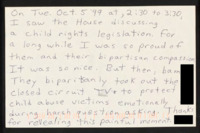 On Tue Oct 5 99 at 2:30 to 3:30,
I saw the House discussing
a child rights legislation. For
a long while I was so proud of
them and their bipartisan compassion
It was so nice. But then, bam
They bipartianly took out the
closed circuit to protect
child abuse victims emotionally
during harsh question asking. Thanks
for revealing this painful moment